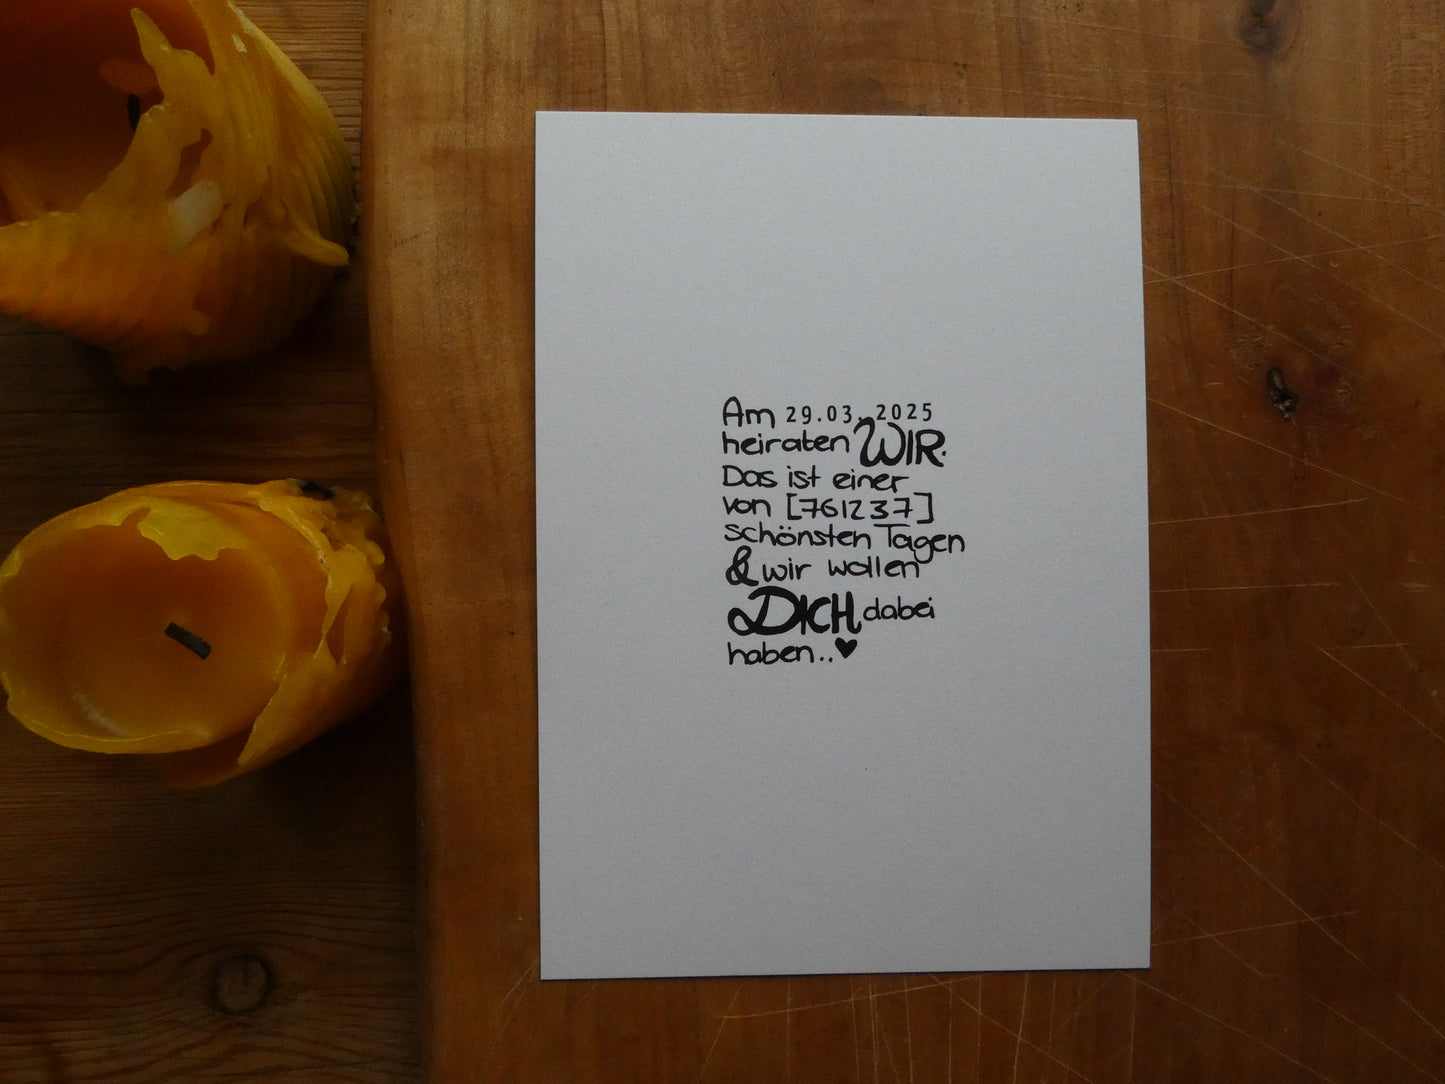 Am 29.03.2025
heiraten WIR.
Das ist einer
von [761237]
schönsten Tagen
& wir wollen
DICH dabei
haben..♥